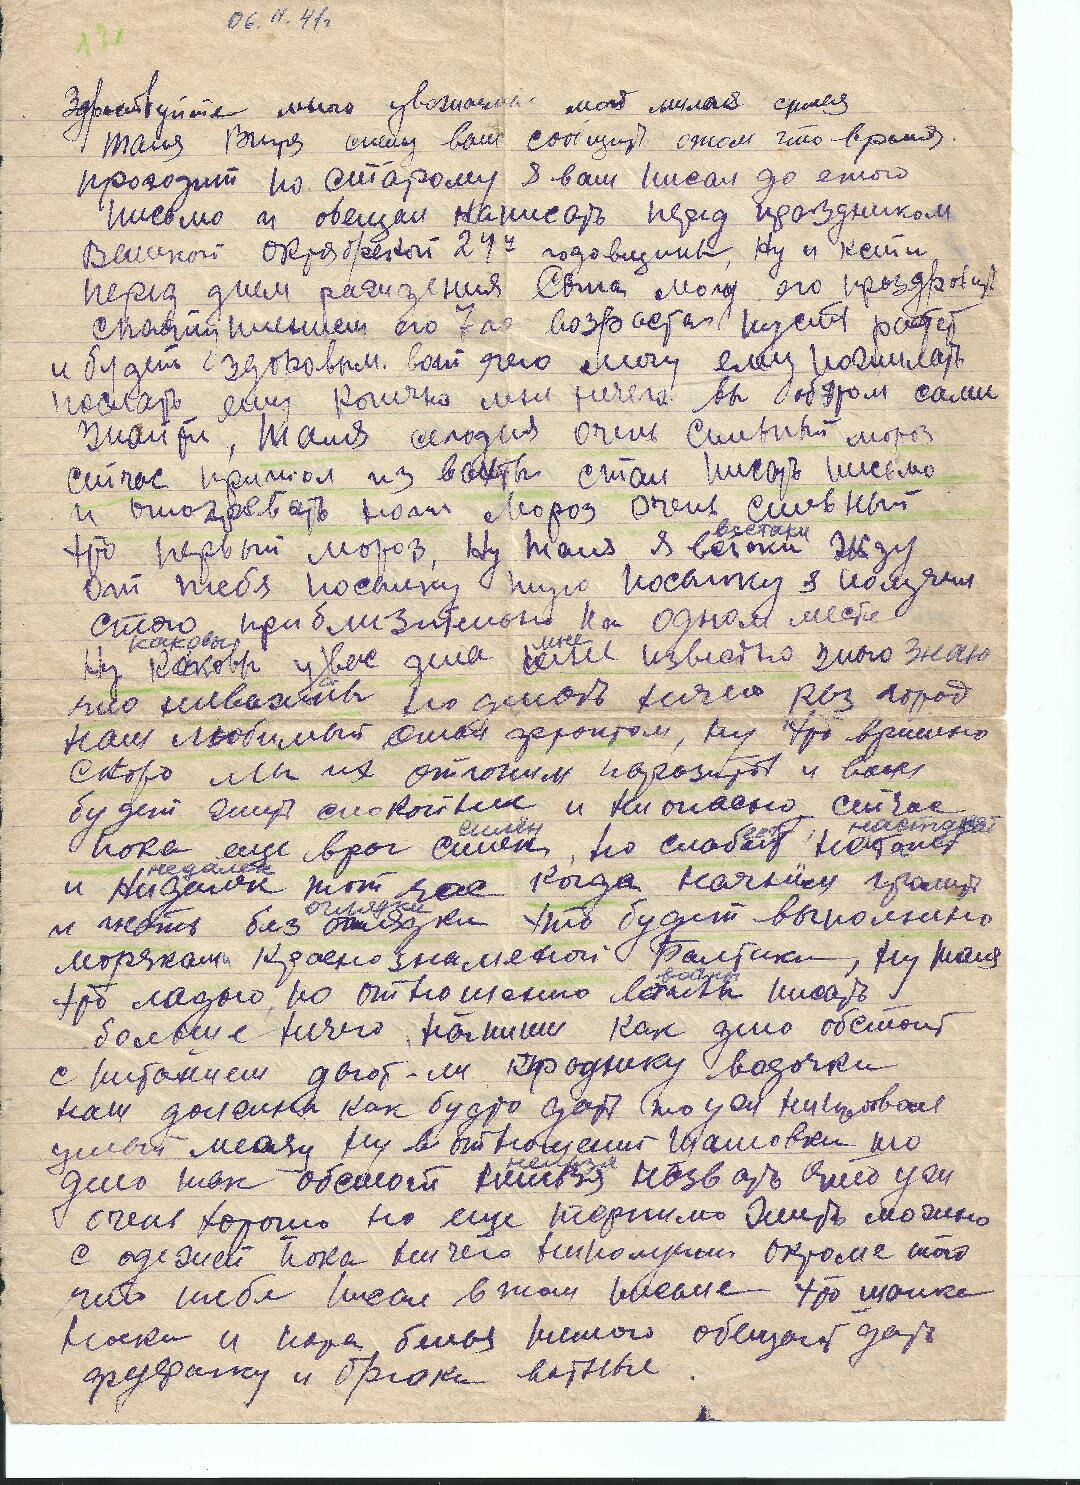 06.11.41г
171
Здраствуйте много уважаемые мой милая семья
Таня Витя спешу вам сообщить отом что время
проходит по старому я вам писал до етого
письмо и обещал написать перед праздником
Великой октябрьской 24й годовщины, Ну и кстати
перед днем раждения Сына могу его проздровить
с 7ло возраста пусть растет
и будет здоровым. вот чего могу ему пожилать
послать ему конечно мне нечего вы обэтом сами
знаити, Таня сегодня очень сильный мороз
сейчас пришол из вахты стал писать письмо
и отогревать ноги мороз очень сильный
это первый мороз, Ну Таня я всетаки всетаки жду
от тебя посылку ту посылку я получил
стою приблизительно на одном месте
Ну каковы каковы увас дела мне мне известно много знаю
что неважны но делать нечего раз город
наш любимый стал фронтом, ну это времено
скоро мы их отгоним паразитов и вам
будет жить спокойнее и неопасно сейчас
пока еще враг силен силен, но слабеет настанет
и нидалек недалек тот час когда начнем громить
и гнать без оглядки оглядки это будет выполнено
моряками Краснознаменой Балтики, Ну Таня
это ладно, по отношению войны войны писать
больше нечего, напиши как дело обстоит
с питанием дают-ли к празднику водочки
нам должны как будто дать то уж непробовал
целый месяц ну в отношении шамовки то
дело так обстоит нельзя нельзя назвать что уж
очень хорошо но еще терпимо жить можно
с одежей пока ничего неполучил окроме того
что тебе писал в том письме это шапка
носки и пара белья немного обещают дать
фуфайку и брюки ватные.